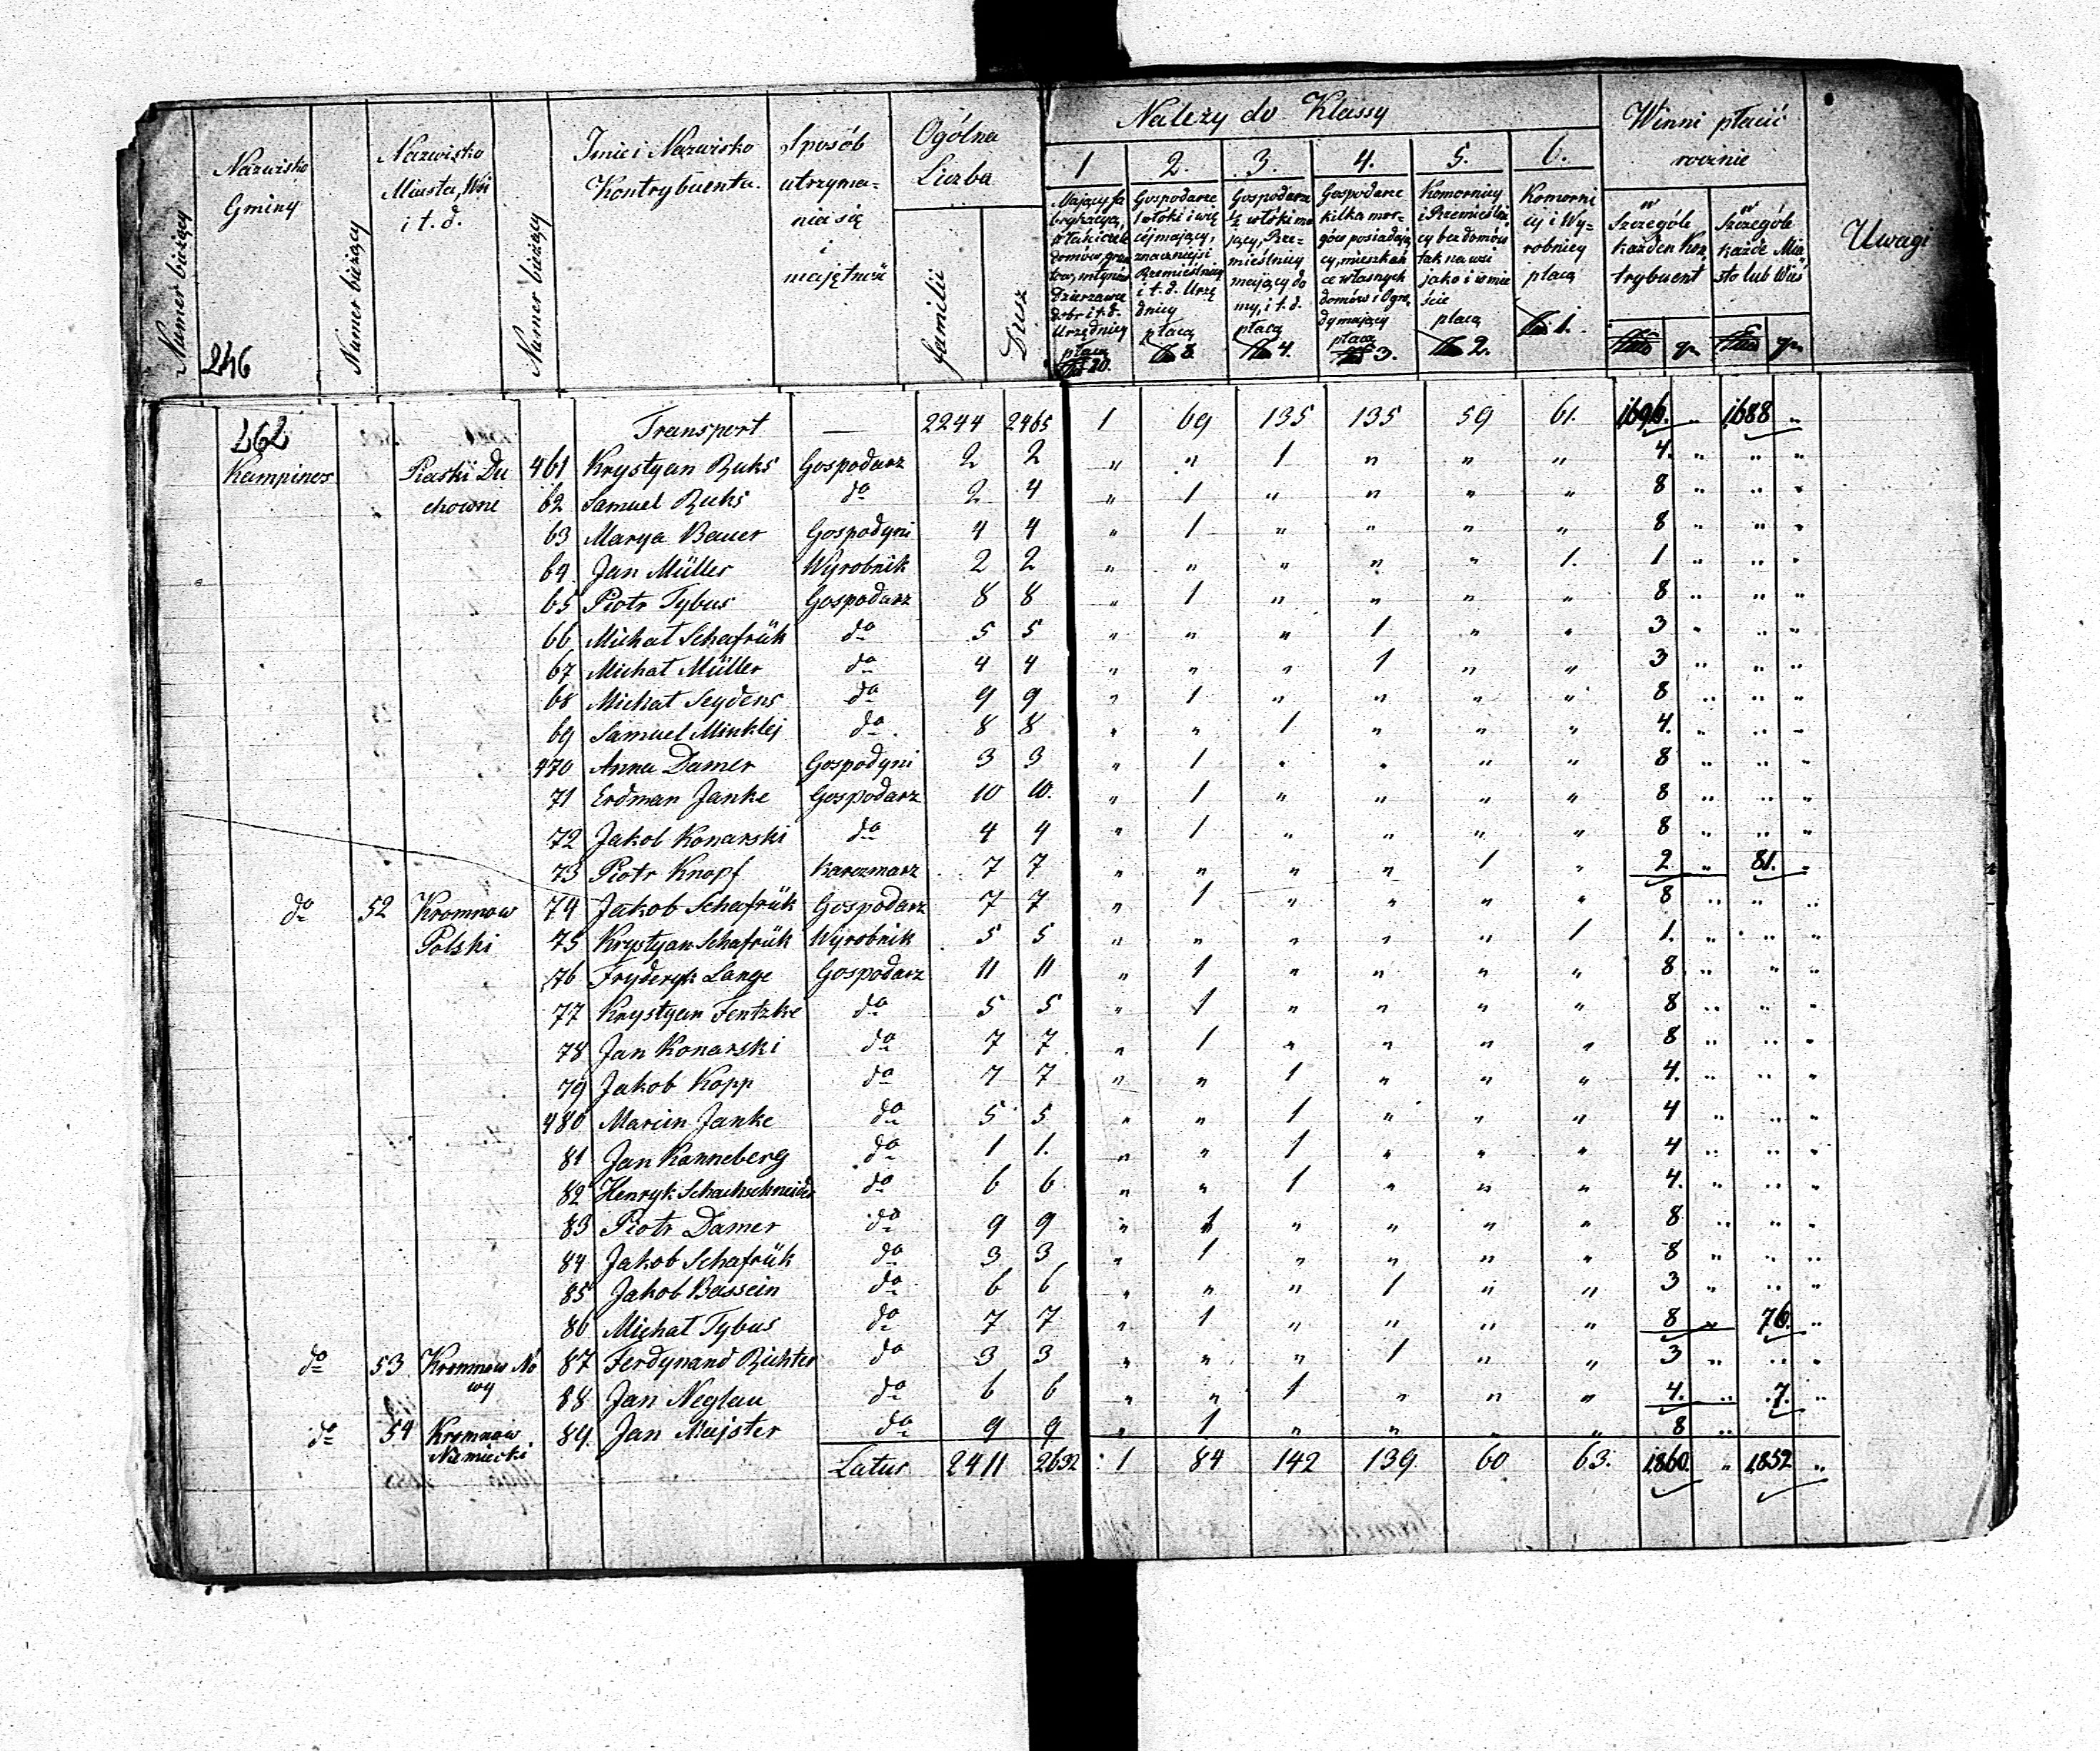 Numer bieżący
Nazwisko Gminy
246
Numer bieżący
Nazwisko Miasta, Wsi i t. d.
Numer bieżący
Imie i Nazwisko Kontrybuenta.
Sposób utrzymania się i majętność
Ogólna Liczba
familii
Dusz
Należy do Klassy
1
Mający fabrykacyą, właściciele domów, młynów Dzierżawce dobr i t. d. Urzędnicy płacą 20.
2.
Gospodarze 1 włoki i więcej mający, znaczniejsi Rzemieślnicy i t. d. Urzędnicy płacą 8.
3.
Gospodarze ½ włóki mający, Rzemieślnicy mający domy, i t. d. płacą 4.
4.
Gospodarze kilka morgów posiadający, mieszkańce własnych domów i Ogrody mający płacą 3.
5.
Komornicy i Rzemieślnicy bez domów tak na wsi jako i w mieście płacą 2.
6.
Komornicy i Wyrobnicy płacą 1.
Winni płacić rocznie
w Szczególe każden Kontrybuent
w Szczególe każde Miasto lub Wieś
gr. gr.
Uwagi
262 Transport — 2244 2465 1 69 135 135 59 61. 1696. „ 1688 „
Kampinos Piaski Du 461 Krystyan Ruks Gospodarz 2 2 „ „ 1 „ „ „ 4. „ „ „
chowne 62 Samuel Ruks do 2 4 „ 1 „ „ „ „ 8 „ „ „
63 Marya Bauer Gospodyni 4 4 „ 1 „ „ „ „ 8 „ „ „
64 Jan Müller Wyrobnik 2 2 „ „ „ „ „ 1. 1 „ „ „
65 Piotr Tybus Gospodarz 8 8 „ 1 „ „ „ „ 8 „ „ „
66 Michał Schafrük do 5 5 „ „ „ 1 „ „ 3 „ „ „
67 Michał Müller do 4 4 „ „ „ 1 „ „ 3 „ „ „
68 Michał Seydens do 9 9 „ 1 „ „ „ „ 8 „ „ „
69 Samuel Minklej do 8 8 „ „ 1 „ „ „ 4. „ „ „
470 Anna Damer Gospodyni 3 3 „ 1 „ „ „ „ 8 „ „ „
71 Erdman Janke Gospodarz 10 10. „ 1 „ „ „ „ 8 „ „ „
72 Jakob Konarski do 4 4 „ 1 „ „ „ „ 8 „ „ „
73 Piotr Knopf Karczmarz 7 7 „ „ „ „ 1 „ 2 „ 81. „
do 52 Kromnow 74 Jakob Schafrük Gospodarz 7 7 „ 1 „ „ „ „ 8 „ „ „
Polski 75 Krystyan Schafrük Wyrobnik 5 5 „ „ „ „ „ 1 1. „ „ „
76 Fryderyk Lange Gospodarz 11 11 „ 1 „ „ „ „ 8 „ „ „
77 Krystyan Fentzke do 5 5 „ 1 „ „ „ „ 8 „ „ „
78 Jan Konarski do 7 7 „ 1 „ „ „ „ 8 „ „ „
79 Jakob Kopp do 7 7 „ „ 1 „ „ „ 4. „ „ „
480 Marcin Janke do 5 5 „ „ 1 „ „ „ 4 „ „ „
81 Jan Kanneberg do 1 1. „ „ 1 „ „ „ 4 „ „ „
82 Henryk Schachschneider do 6 6 „ „ 1 „ „ „ 4. „ „ „
83 Piotr Damer do 9 9 „ 1 „ „ „ „ 8 „ „ „
84 Jakob Schafrük do 3 3 „ 1 „ „ „ „ 8 „ „ „
85 Jakob Bassein do 6 6 „ „ „ 1 „ „ 3 „ „ „
86 Michał Tybus do 7 7 „ 1 „ „ „ „ 8 „ 76. „
do 53 Kromnow No 87 Ferdynand Richter do 3 3 „ „ „ 1 „ „ 3 „ „ „
wy 88 Jan Neglau do 6 6 „ „ 1 „ „ „ 4. „ 7. „
do 54 Kromnow 89. Jan Majster do 9 9 „ 1 „ „ „ „ 8 „
Niemiecki Latus 2411 2632 1 84 142 139 60 63. 1860. „ 1852 „